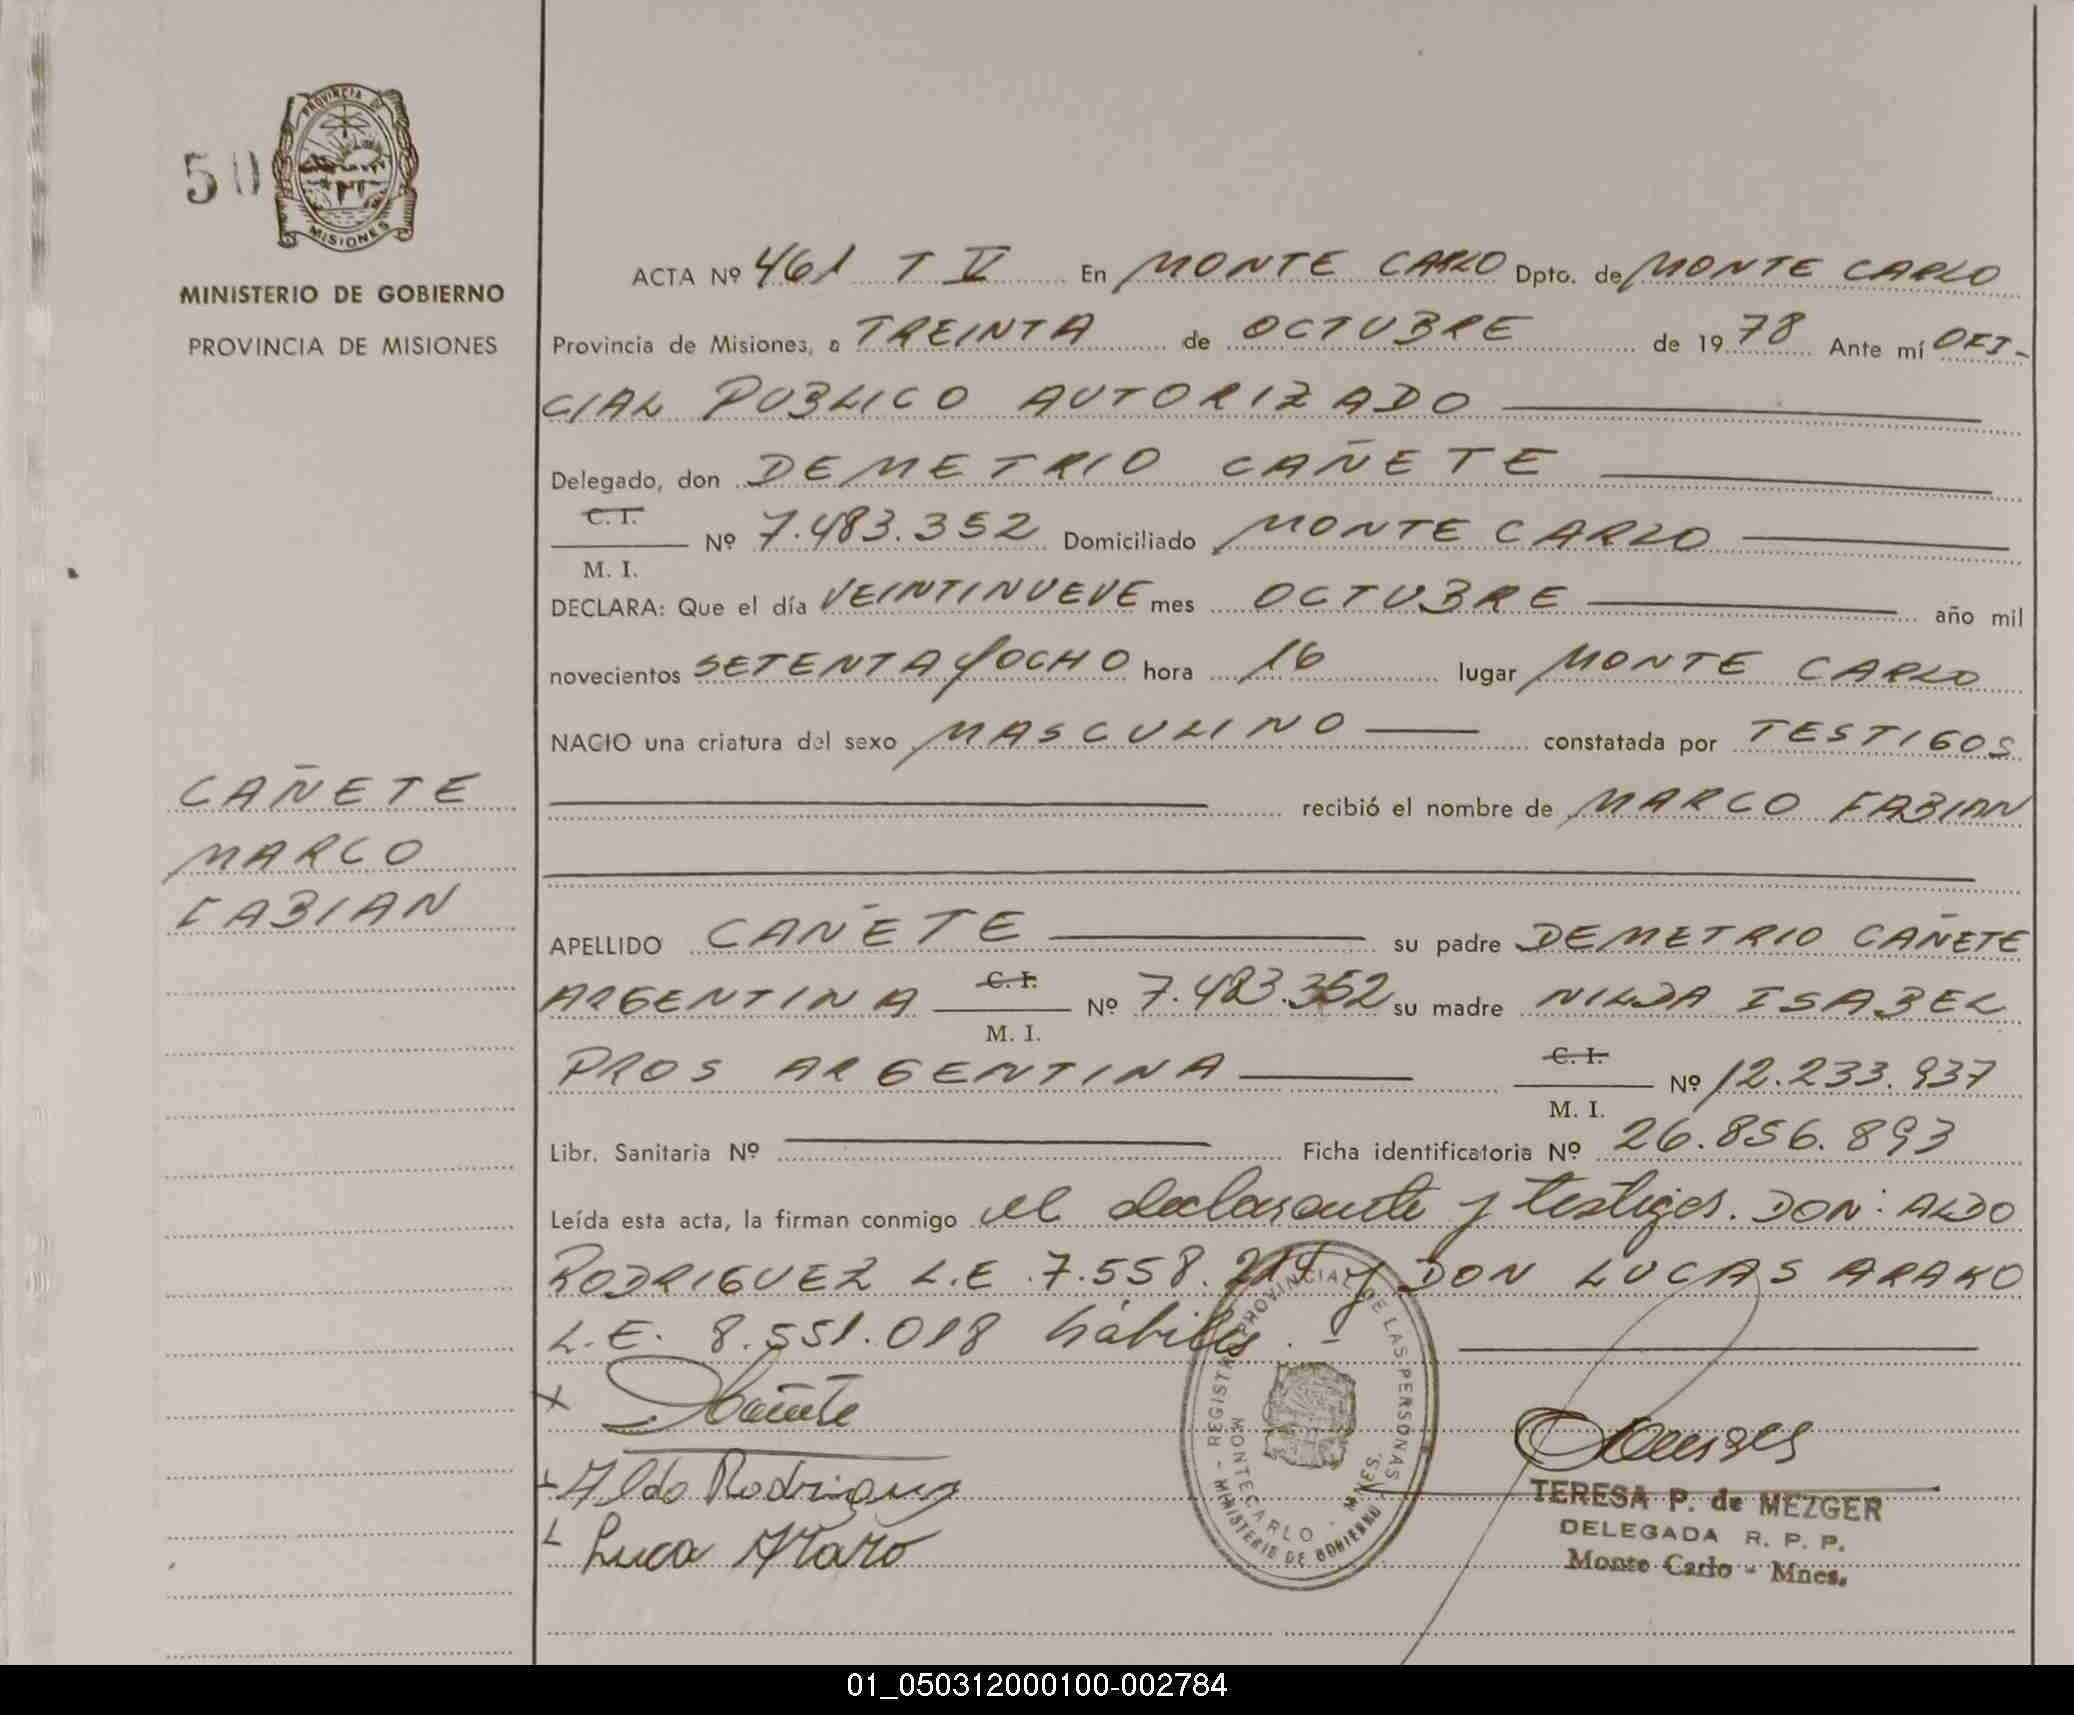 50
PROVINCIA DE
MISIONES
MINISTERIO DE GOBIERNO
PROVINCIA DE MISIONES
CAÑETE
MARCO
FABIAN
ACTA Nº 461 T V En MONTE CARLO Dpto. de MONTE CARLO
Provincia de Misiones, a TREINTA de OCTUBRE de 1978 Ante mí OFI-
CIAL PUBLICO AUTORIZADO
Delegado, don DEMETRIO CAÑETE
C. I.
Nº 7.483.352 Domiciliado MONTE CARLO
M. I.
DECLARA: Que el día VEINTINUEVE mes OCTUBRE año mil
novecientos SETENTA y OCHO hora 16 lugar MONTE CARLO
NACIO una criatura del sexo MASCULINO constatada por TESTIGOS
recibió el nombre de MARCO FABIAN
APELLIDO CAÑETE su padre DEMETRIO CAÑETE
ARGENTINA C. I. Nº 7.483.352 su madre NILDA ISABEL
M. I.
PROS ARGENTINA C. I. Nº 12.233.937
M. I.
Libr. Sanitaria Nº Ficha identificatoria Nº 26.856.893
Leída esta acta, la firman conmigo el declarante y testigos. DON: ALDO
RODRIGUEZ L.E. 7.558. y DON LUCAS ARAKO
L.E. 8.551.018 hábiles.-
x DCañete
Aldo Rodriguez
Luca
REGISTRO PROVINCIAL DE LAS PERSONAS - MINISTERIO DE GOBIERNO
MONTECARLO - MNES.
TERESA P. de MEZGER
DELEGADA R. P. P.
Monte Carlo - Mnes.
01_050312000100-002784